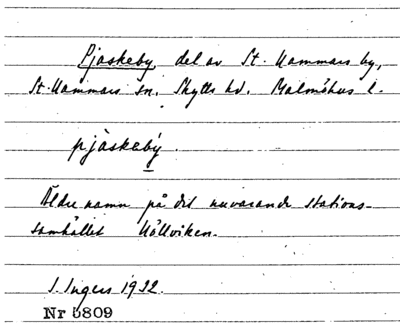 Pjäskeby, del av St. Hammars by,
St. Hammars sn. Skytts hd. Malmöhus l.
pjäskebý.
Äldre namn på det nuvarande stations-
samhället Höllviken.
I. Ingers 1932.
Nr 5809